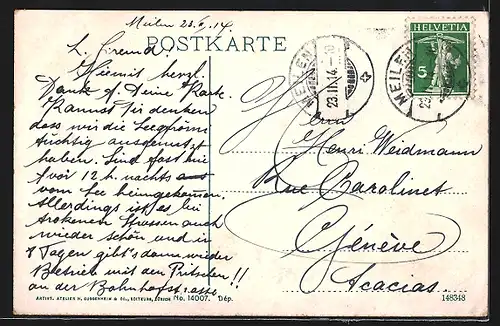 Meilen 23./2. 14
POSTKARTE
L. Freund.
Hiemit herzl.
Dank f. Deine Karte.
Kannst Dir denken
dass wir die Seegfrörni
tüchtig ausgenutzt
haben. Sind fast nie
vor 12 h. nachts
vom See heimgekommen.
Allerdings ist es bei
trokenen Strassen auch
wieder schön und in
8 Tagen gibt's dann wieder
Betrieb mit den Pritschen
an der Bahnhofstrasse!!
MEILEN
23.II.14
HELVETIA
5
MEILEN
23
Herrn
Henri Weidmann
Rue Carolinet
Génève
Acacias.
ARTIST. ATELIER H. GUGGENHEIM & CO., EDITEURS, ZÜRICH No. 14007. Dép.
148348